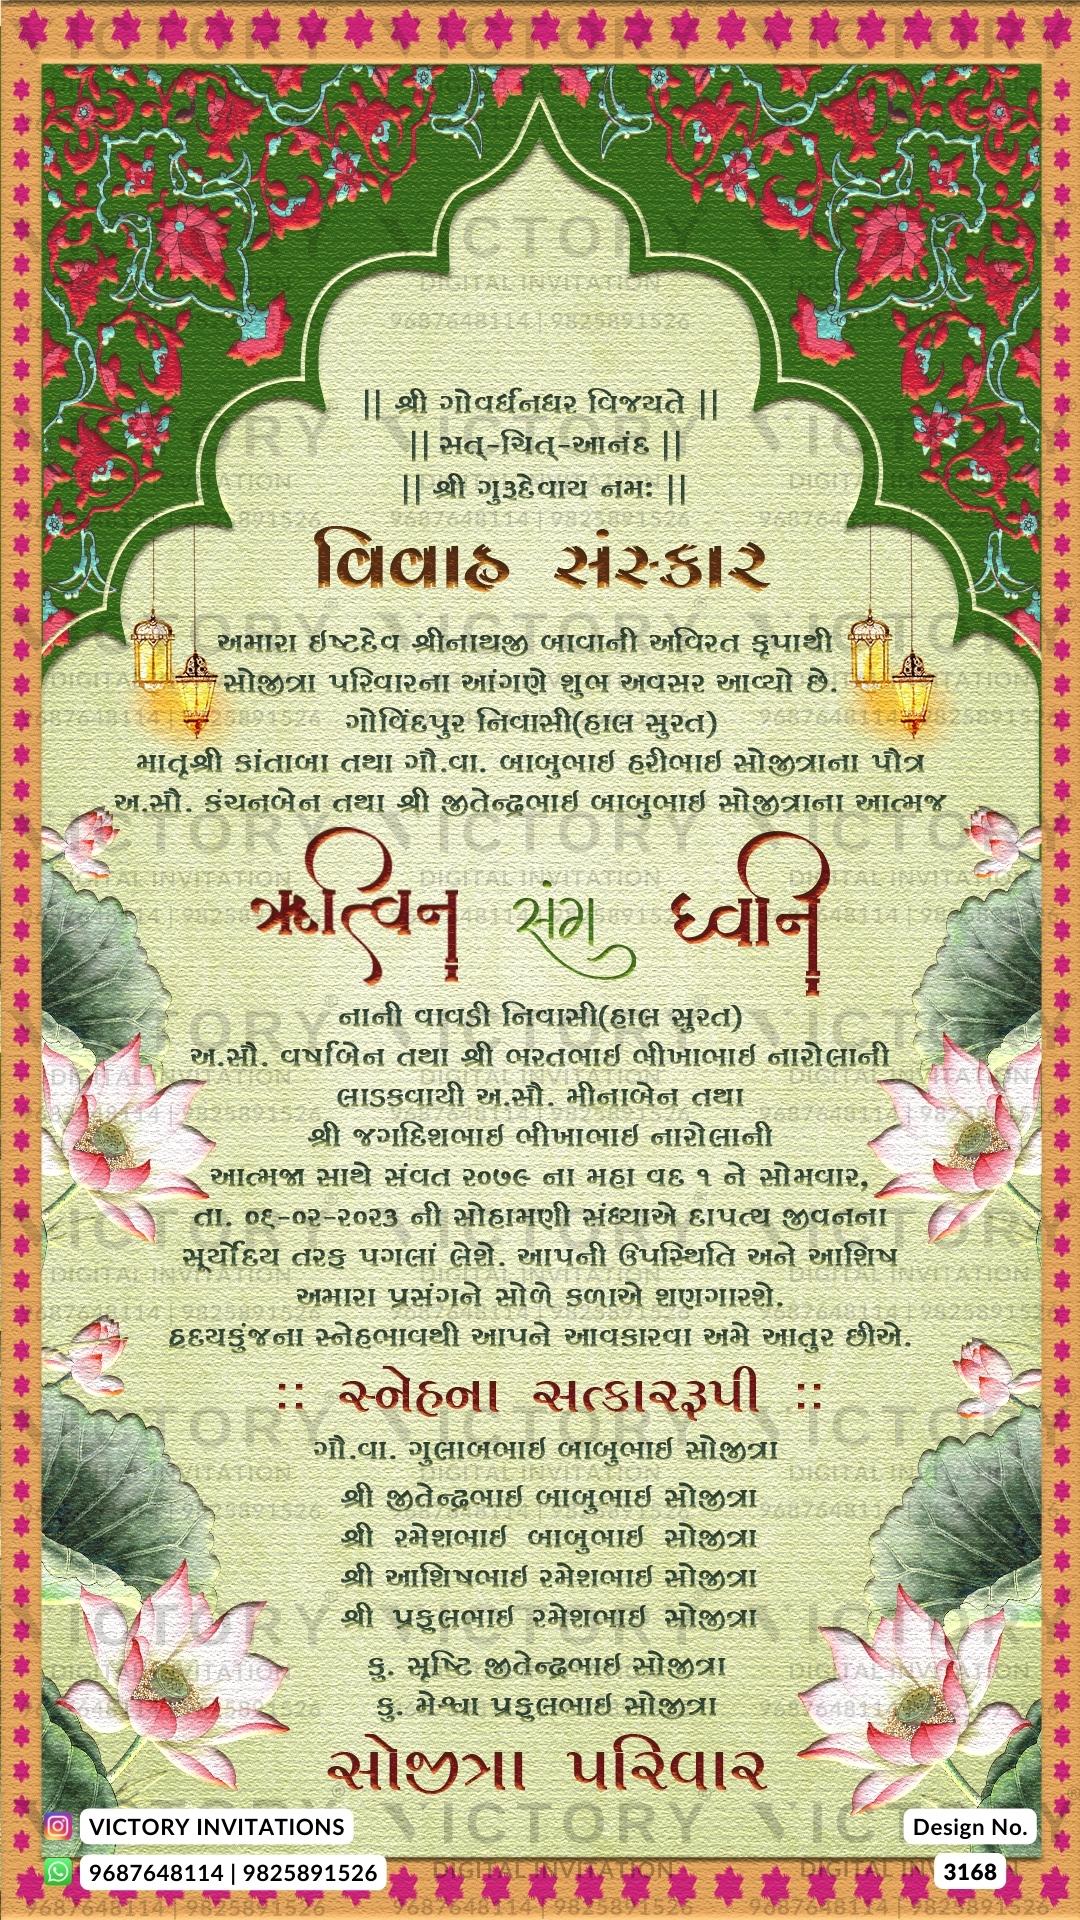 || શ્રી ગોવર્ધનધર વિજયતે ||
|| સત્-ચિત્-આનંદ ||
|| શ્રી ગુરૂદેવાય નમઃ ||
વિવાહ સંસ્કાર
અમારા ઇષ્ટદેવ શ્રીનાથજી બાવાની અવિરત કૃપાથી
સોજીત્રા પરિવારના આંગણે શુભ અવસર આવ્યો છે.
ગોવિંદપુર નિવાસી(હાલ સુરત)
માતૃશ્રી કાંતાબા તથા ગૌ.વા. બાબુભાઇ હરીભાઇ સોજીત્રાના પૌત્ર
અ.સૌ. કંચનબેન તથા શ્રી જીતેન્દ્રભાઇ બાબુભાઇ સોજીત્રાના આત્મજ
ઋત્વિન સંગ ધ્વાનિ
નાની વાવડી નિવાસી(હાલ સુરત)
અ.સૌ. વર્ષાબેન તથા શ્રી ભરતભાઇ ભીખાભાઇ નારોલાની
લાડકવાયી અ.સૌ. મીનાબેન તથા
શ્રી જગદિશભાઇ ભીખાભાઇ નારોલાની
આત્મજા સાથે સંવત ૨૦૭૯ ના મહા વદ ૧ ને સોમવાર,
તા. ૦૬-૦૨-૨૦૨૩ ની સોહામણી સંધ્યાએ દાપત્ય જીવનના
સૂર્યોદય તરફ પગલાં લેશે. આપની ઉપસ્થિતિ અને આશિષ
અમારા પ્રસંગને સોળે કળાએ શણગારશે.
હૃદયકુંજના સ્નેહભાવથી આપને આવકારવા અમે આતુર છીએ.
:: સ્નેહના સત્કારરૂપી ::
ગૌ.વા. ગુલાબભાઇ બાબુભાઇ સોજીત્રા
શ્રી જીતેન્દ્રભાઇ બાબુભાઇ સોજીત્રા
શ્રી રમેશભાઇ બાબુભાઇ સોજીત્રા
શ્રી આશિષભાઇ રમેશભાઇ સોજીત્રા
શ્રી પ્રફુલભાઇ રમેશભાઇ સોજીત્રા
કુ. સૃષ્ટિ જીતેન્દ્રભાઇ સોજીત્રા
કુ. મેશ્વા પ્રફુલભાઇ સોજીત્રા
સોજીત્રા પરિવાર
VICTORY INVITATIONS
Design No.
9687648114 | 9825891526
3168